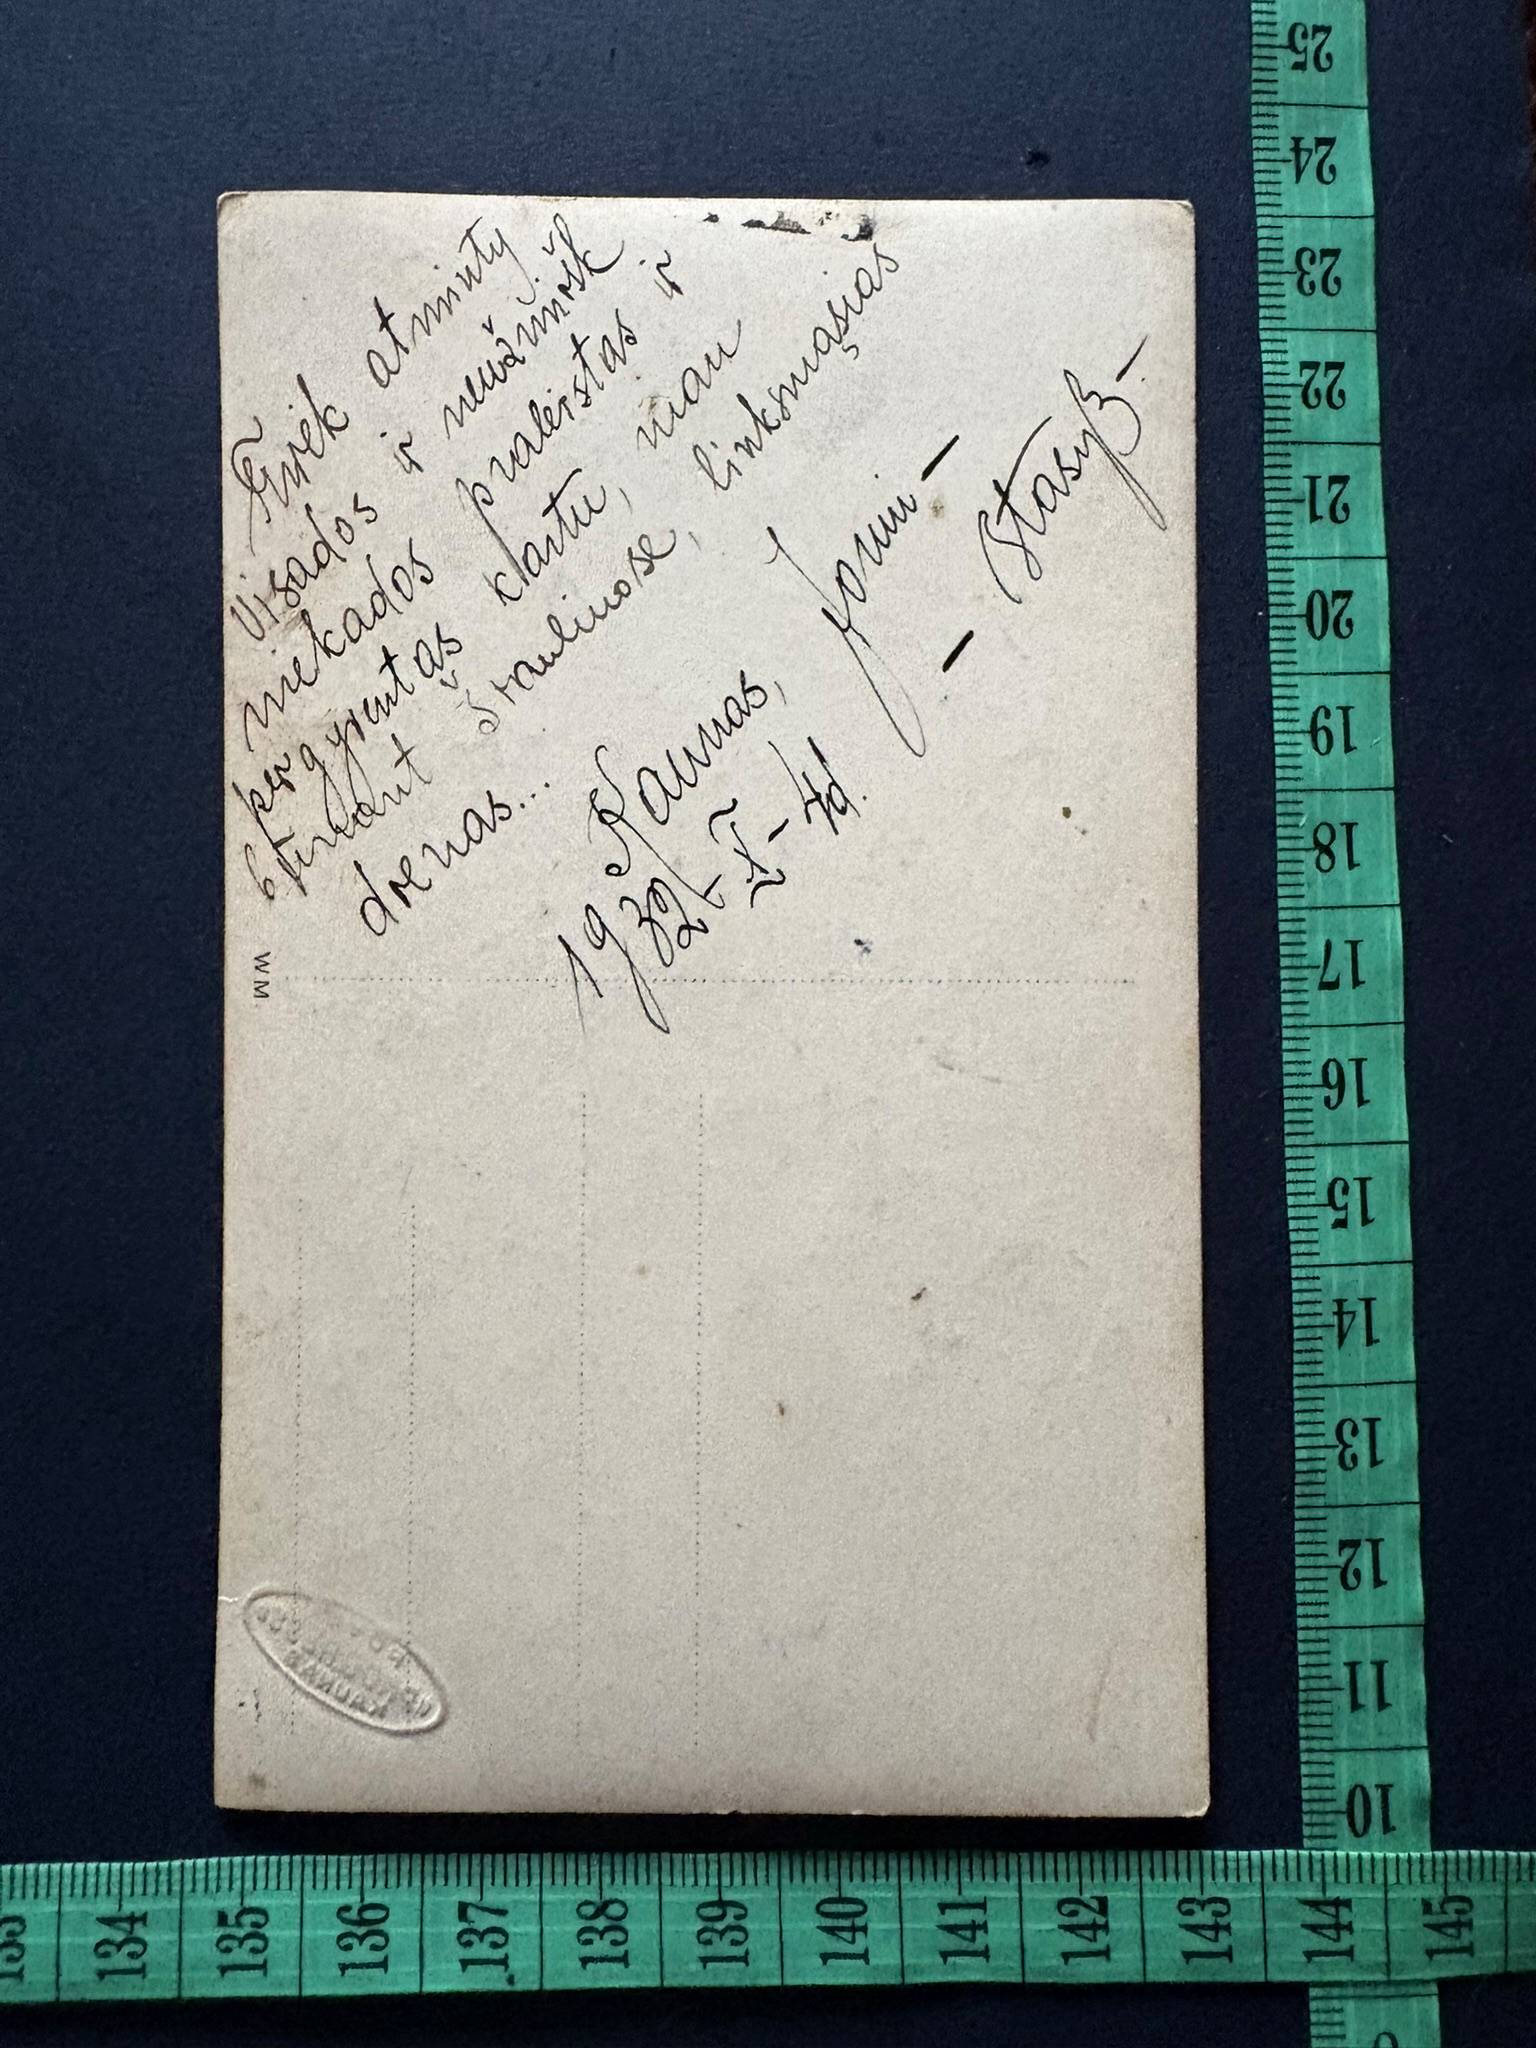 Turėk atmintý
visados ir neužmiršk
niekados praleistas ir
pergyventas kartu, man
būnant Šiauliuose, linksmąsias
dienas...
Kaunas,
1932-I-7d.
Jonui-
- Stasys -
WM
25
24
23
22
21
20
19
18
17
16
15
14
13
12
11
10
134
135
136
137
138
139
140
141
142
143
144
145